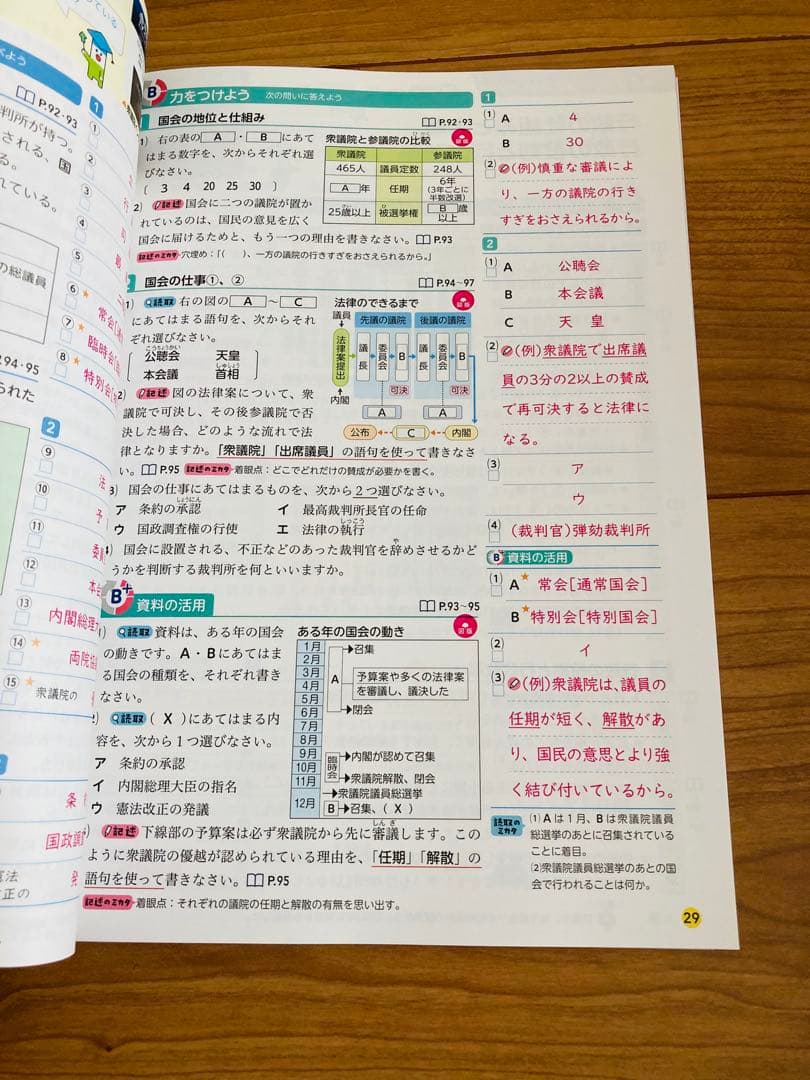 ている
べよう
P.92・93
判所が持つ。
される、国
る。
れている。
の総議員
P.94・95
られた
1
①
②
③
④
⑤
⑥
⑦
⑧
常会[
臨時会[
特別会[
2
⑨
⑩
⑪
⑫
⑬
⑭
⑮
法
予
委員
本会
内閣総理
両院協
衆議院の
条
国政調
発
憲法
改正の
B 力をつけよう 次の問いに答えよう
国会の地位と仕組み P.92・93
1) 右の表の A ・ B にあて
はまる数字を、次からそれぞれ選
びなさい。
〔 3 4 20 25 30 〕
衆議院と参議院の比較
衆議院 参議院
465人 議員定数 248人
A 年 任期 6年(3年ごとに半数改選)
25歳以上 被選挙権 B 歳以上
2) 記述 国会に二つの議院が置か
れているのは、国民の意見を広く
国会に届けるためと、もう一つの理由を書きなさい。 P.93
記述のミカタ 穴埋め:「( )、一方の議院の行きすぎをおさえられるから。」
国会の仕事①、② P.94~97
1) 読取 右の図の A ~ C
にあてはまる語句を、次からそれ
ぞれ選びなさい。
公聴会 天皇
本会議 首相
こうちょうかい
しゅしょう
法律のできるまで
議員 先議の議院 後議の議院
法律案提出
議長 委員会 B 議長 委員会 B
可決 可決
内閣
A A
公布 C 内閣
2) 記述 図の法律案について、衆
議院で可決し、その後参議院で否
決した場合、どのような流れで法
律となりますか。「衆議院」「出席議員」の語句を使って書きなさ
い。 P.95 記述のミカタ 着眼点:どこでどれだけの賛成が必要かを書く。
3) 国会の仕事にあてはまるものを、次から2つ選びなさい。
ア 条約の承認 イ 最高裁判所長官の任命
ウ 国政調査権の行使 エ 法律の執行
4) 国会に設置される、不正などのあった裁判官を辞めさせるかど
うかを判断する裁判所を何といいますか。
B+ 資料の活用 P.93~95
1) 読取 資料は、ある年の国会
の動きです。A・Bにあてはま
る国会の種類を、それぞれ書き
なさい。
2) 読取 ( X )にあてはまる内
容を、次から1つ選びなさい。
ア 条約の承認
イ 内閣総理大臣の指名
ウ 憲法改正の発議
ある年の国会の動き
1月 召集
2月
3月 予算案や多くの法律案
4月 A を審議し、議決した
5月
6月 閉会
7月
8月
9月 内閣が認めて召集
10月 臨時会
11月 衆議院解散、閉会
12月 衆議院議員総選挙
B 召集、( X )
記述 下線部の予算案は必ず衆議院から先に審議します。この
ように衆議院の優越が認められている理由を、「任期」「解散」の
語句を使って書きなさい。 P.95
記述のミカタ 着眼点:それぞれの議院の任期と解散の有無を思い出す。
1
(1) A 4
B 30
(2) (例)慎重な審議によ
り、一方の議院の行き
すぎをおさえられるから。
2
(1) A 公聴会
B 本会議
C 天皇
(2) (例)衆議院で出席議
員の3分の2以上の賛成
で再可決すると法律に
なる。
(3) ア
ウ
(4) (裁判官)弾劾裁判所
B+ 資料の活用
(1) A★ 常会[通常国会]
B★ 特別会[特別国会]
(2) イ
(3) (例)衆議院は、議員の
任期が短く、解散があ
り、国民の意思とより強
く結び付いているから。
読取のミカタ
(1)Aは1月、Bは衆議院議員
総選挙のあとに召集されている
ことに着目。
(2)衆議院議員総選挙のあとの国
会で行われることは何か。
29